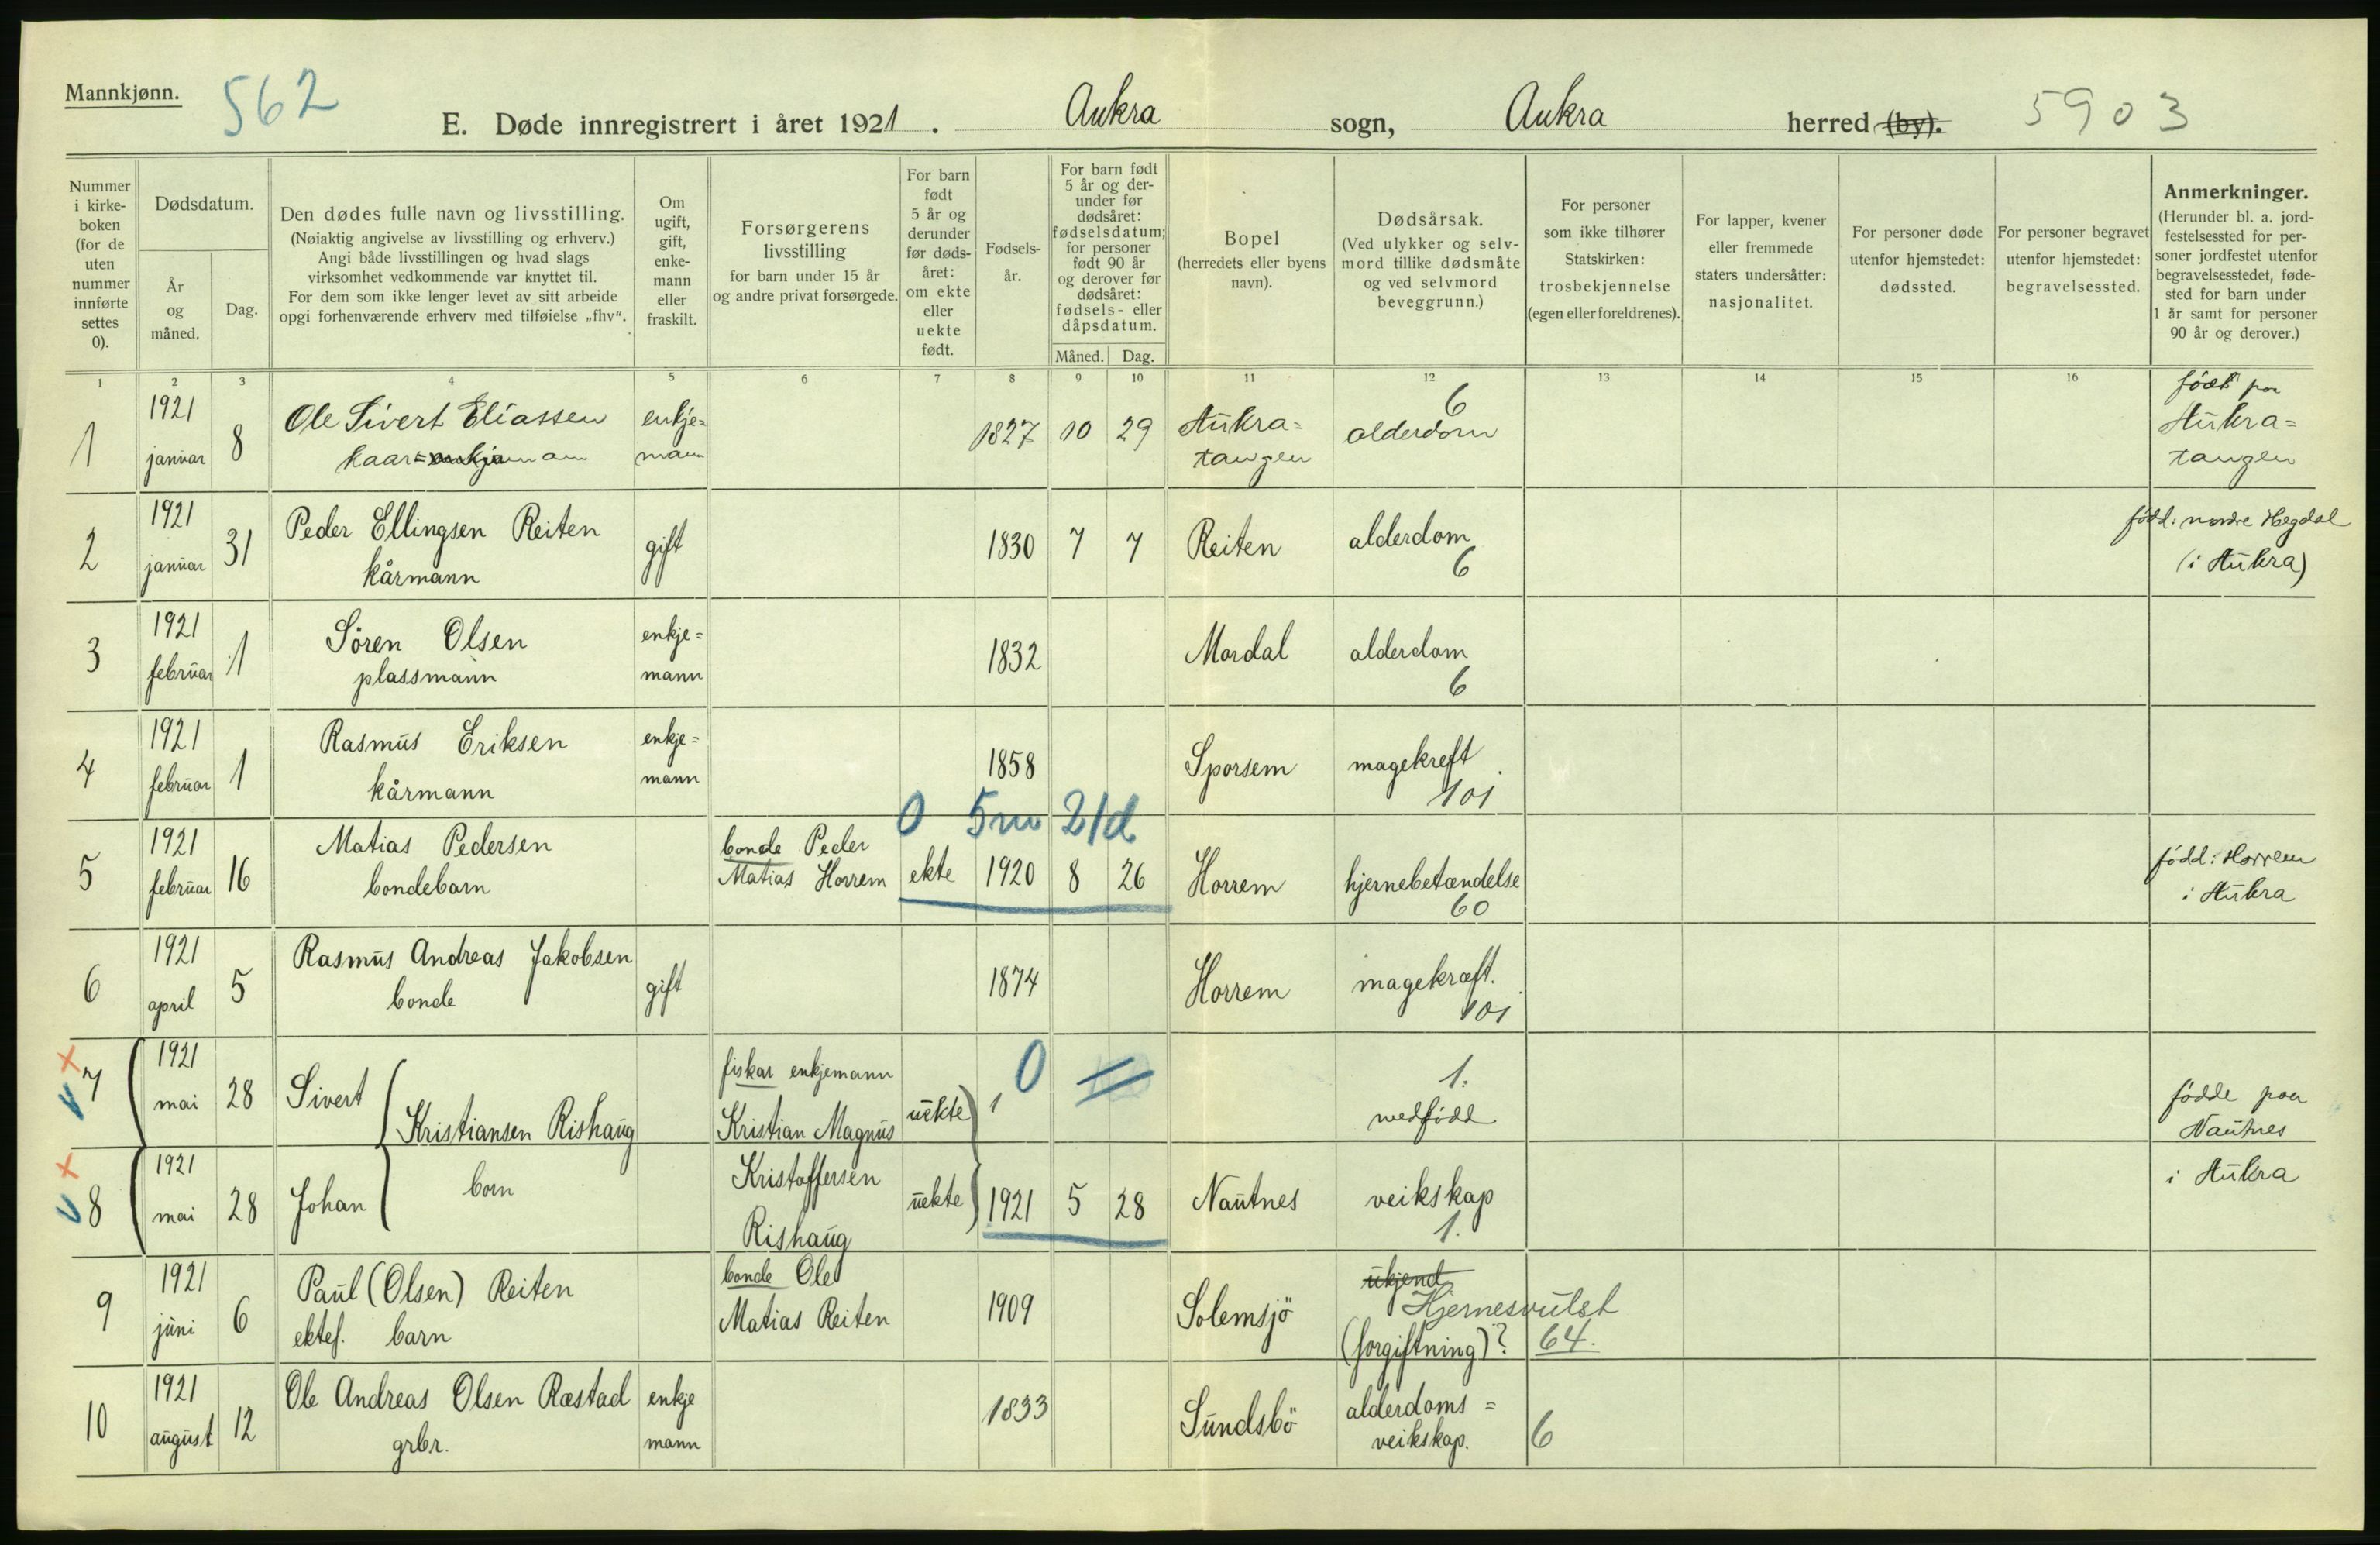 Mannkjønn.
562
E. Døde innregistrert i året 1921. Aukra sogn, Aukra herred (by).
5903
Nummer i kirkeboken (for de uten nummer innførte settes 0).
Dødsdatum.
År og måned.
Dag.
Den dødes fulle navn og livsstilling.
(Nøiaktig angivelse av livsstilling og erhverv.)
Angi både livsstillingen og hvad slags
virksomhet vedkommende var knyttet til.
For dem som ikke lenger levet av sitt arbeide
opgi forhenværende erhverv med tilføielse „fhv“.
Om ugift, gift, enkemann eller fraskilt.
Forsørgerens livsstilling
for barn under 15 år
og andre privat forsørgede.
For barn født 5 år og derunder før dødsåret: om ekte eller uekte født.
Fødselsår.
For barn født 5 år og derunder før dødsåret: fødselsdatum; for personer født 90 år og derover før dødsåret: fødsels- eller dåpsdatum.
Måned. Dag.
Bopel
(herredets eller byens navn).
Dødsårsak.
(Ved ulykker og selvmord tillike dødsmåte og ved selvmord beveggrunn.)
For personer som ikke tilhører Statskirken: trosbekjennelse (egen eller foreldrenes).
For lapper, kvener eller fremmede staters undersåtter: nasjonalitet.
For personer døde utenfor hjemstedet: dødssted.
For personer begravet utenfor hjemstedet: begravelsessted.
Anmerkninger.
(Herunder bl. a. jordfestelsessted for personer jordfestet utenfor begravelsesstedet, fødested for barn under 1 år samt for personer 90 år og derover.)
1 2 3 4 5 6 7 8 9 10 11 12 13 14 15 16
1 1921 januar 8 Ole Sivert Eliassen kaar=enkjemann enkje=mann 1827 10 29 Aukra=tangen 6 alderdom født paa Aukra=tangen
2 1921 januar 31 Peder Ellingsen Reiten kårmann gift 1830 7 7 Reiten alderdom 6 född: nordre Hægdal (i Aukra)
3 1921 februar 1 Sören Olsen plassmann enkje=mann 1832 Mordal alderdom 6
4 1921 februar 1 Rasmus Eriksen kårmann enkje=mann 1858 Sporsem magekreft 101
0 5m 21d
5 1921 februar 16 Matias Pedersen bondebarn bonde Peder Matias Horrem ekte 1920 8 26 Horrem hjernebetændelse 60 född: Horrem i Aukra
6 1921 april 5 Rasmus Andreas Jakobsen bonde gift 1874 Horrem magekræft. 101
7 1921 mai 28 Sivert Kristiansen Rishaug fiskar enkjemann Kristian Magnus uekte 1 0 1. medfödd födde paa Nautnes
8 1921 mai 28 Johan born Kristoffersen Rishaug uekte 1921 5 28 Nautnes veikskap 1. i Aukra
9 1921 juni 6 Paul (Olsen) Reiten ektef. barn bonde Ole Matias Reiten 1909 Solemsjö ukjend Hjernesvulst (forgiftning)? 64.
10 1921 august 12 Ole Andreas Olsen Ræstad grbr. enkje mann 1833 Sundsbö alderdoms=veikskap. 6